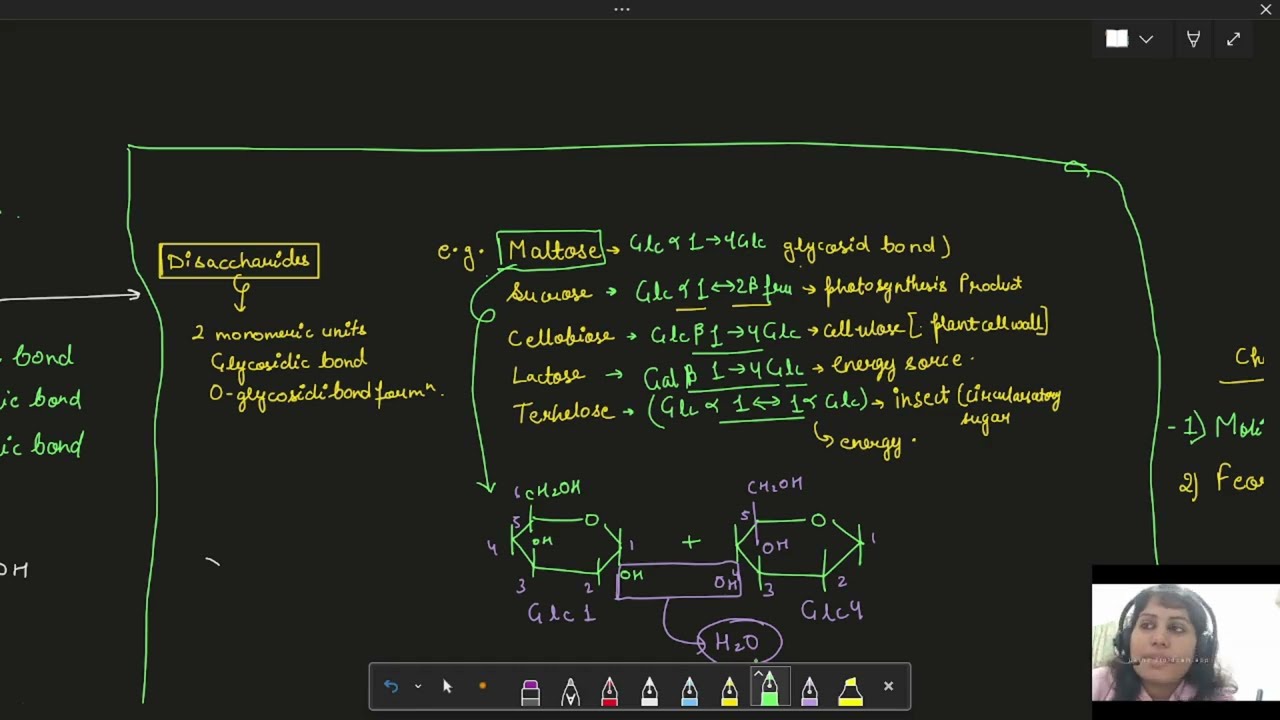 Disaccharides
2 monomeric units
Glycosidic bond
O-glycosidi bond formⁿ.
e.g. Maltose → Glc α 1→4Glc glycosid bond)
Sucrose → Glc α 1↔2β fru → photosynthesis Product
Cellobiose → Glc β 1→4Glc → cellulose [∴ plant cell wall]
Lactose → Gal β 1→4Glc → energy sorce.
Terhelose → (Glc α 1↔1α Glc) → insect (circularatory
sugar
↳ energy.
bond
ic bond
ic bond
OH
6 CH₂OH
5
O
4
OH
1
3
2
OH
Glc 1
+
CH₂OH
5
O
OH
1
4
OH
3
2
Glc 4
H₂O
Ch
-1) Moli
2) Feor